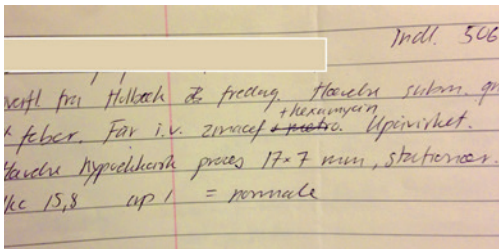 Indl. 506
overfl fra Holbæk fredag. Hævelse subm. gr
+hexamycin
+ feber. Får i.v. zinacef + metro. Upåvirket.
hypoekkoisk proces 17×7 mm, stationær.
15,8 crp 1 = normale